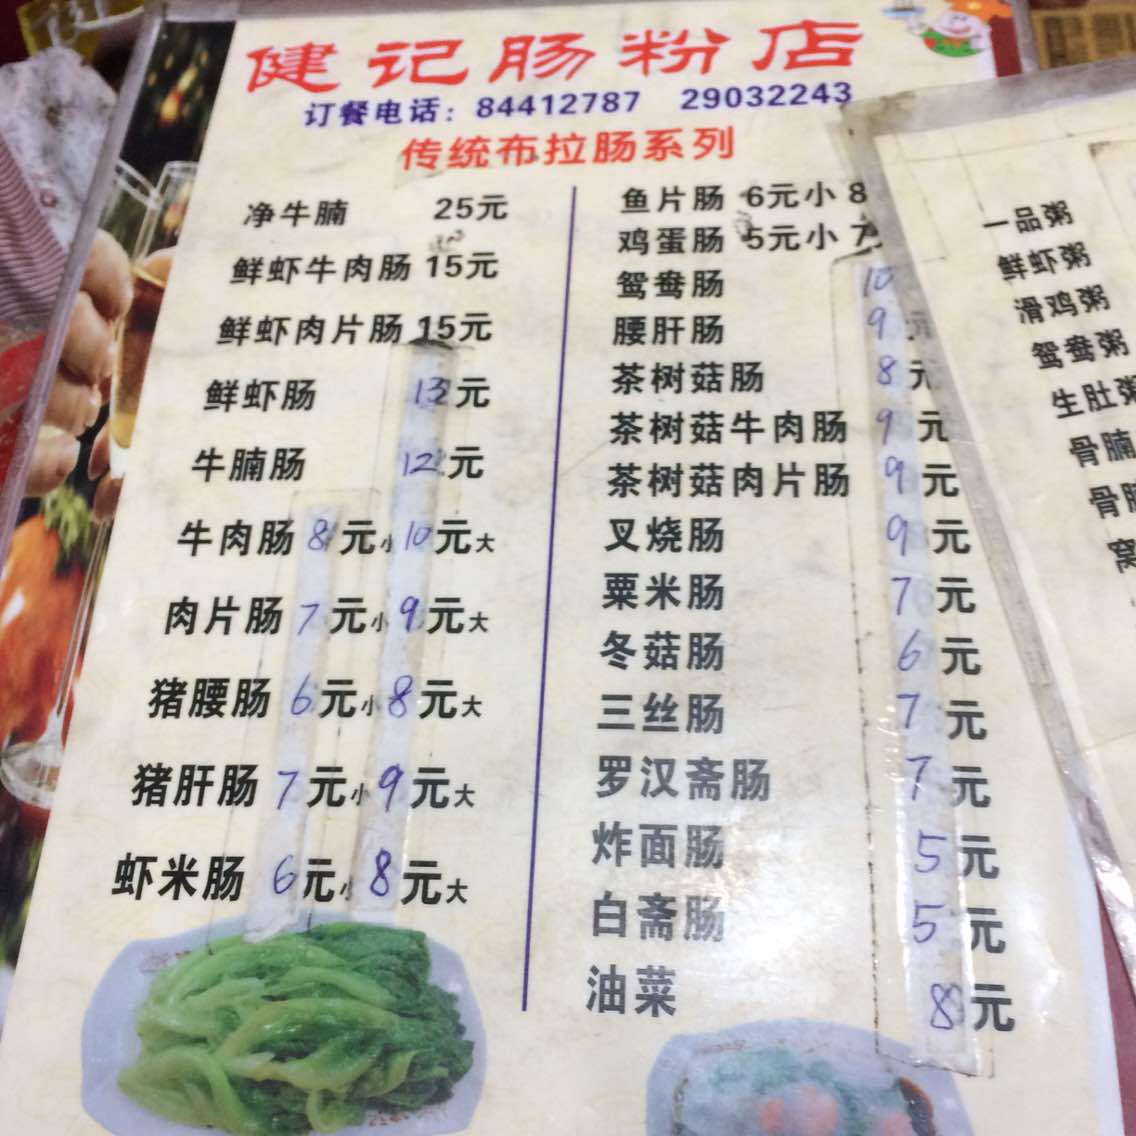 健记肠粉店
订餐电话：84412787 29032243
传统布拉肠系列
净牛腩 25元
鲜虾牛肉肠 15元
鲜虾肉片肠 15元
鲜虾肠 13元
牛腩肠 12元
牛肉肠 8元小 10元大
肉片肠 7元小 9元大
猪腰肠 6元小 8元大
猪肝肠 7元小 9元大
虾米肠 6元小 8元大
鱼片肠 6元小 8
鸡蛋肠 5元小 7
鸳鸯肠 10
腰肝肠 9元
茶树菇肠 8元
茶树菇牛肉肠 9元
茶树菇肉片肠 9元
叉烧肠 9元
粟米肠 7元
冬菇肠 6元
三丝肠 7元
罗汉斋肠 7元
炸面肠 5元
白斋肠 5元
油菜 8元
一品粥
鲜虾粥
滑鸡粥
鸳鸯粥
生肚粥
骨腩
骨
窝